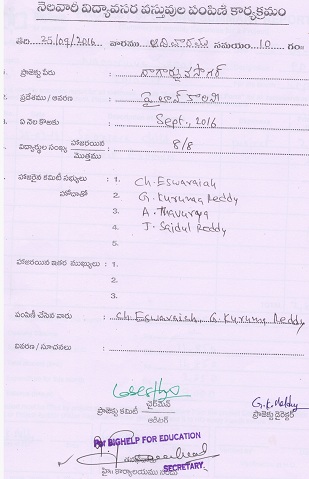 నెలవారీ విద్యావసర వస్తువుల పంపిణీ కార్యక్రమం
తేది: 25/09/2016 వారము ఆదివారము సమయం: 10 గం॥
1. ప్రాజెక్టు పేరు : నాగార్జునసాగర్
2. ప్రదేశము / ఆవరణ : పైలాన్ కాలనీ
3. ఏ నెల కొరకు : Sept., 2016
4. విద్యార్థుల సంఖ్య హాజరయిన / మొత్తము : 8/8
హాజరైన కమిటీ సభ్యులు : 1. Ch. Eswaraiah
సహదాతో 2. G. Kuruma Reddy
3. A. Thavurya
4. J. Saidul Reddy
5.
హాజరయిన ఇతర ముఖ్యులు : 1.
2.
3.
పంపిణీ చేసిన వారు : Ch Eswaraiah, G. Kuruma Reddy
వివరణ / సూచనలు :
ప్రాజెక్టు కమిటీ ఛైర్మన్ G.K. Reddy
ఆడిటర్ ప్రాజెక్టు డైరెక్టర్
For BIGHELP FOR EDUCATION
హై॥ కార్యాలయము
SECRETARY.